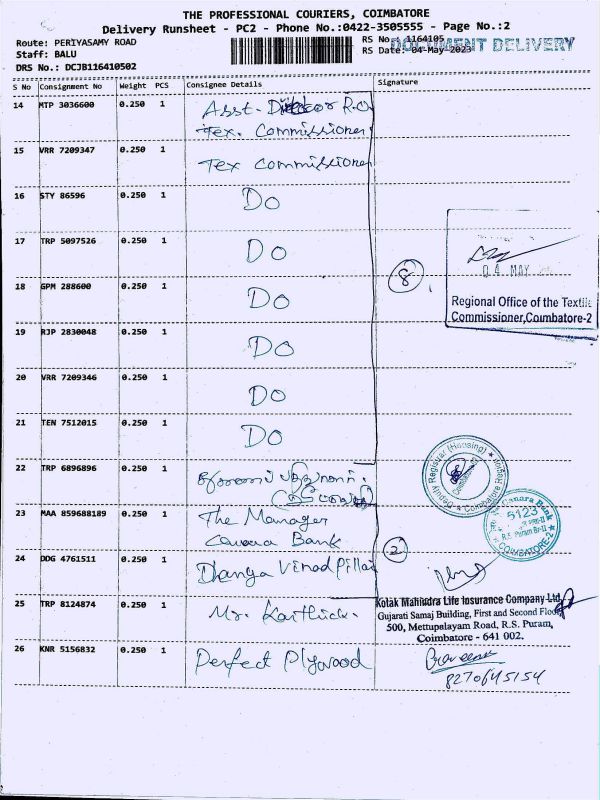 THE PROFESSIONAL COURIERS, COIMBATORE
Delivery Runsheet - PC2 - Phone No.:0422-3505555 - Page No.:2
Route: PERIYASAMY ROAD
RS No.: 1164105
Staff: BALU
RS Date: 04-May-2023
DOCUMENT DELIVERY
DRS No.: DCJB116410502
S No Consignment No Weight PCS Consignee Details Signature
14 MTP 3036600 0.250 1 Asst. R.O
Tex. Commissioner
15 VRR 7209347 0.250 1 Tex Commissioner
16 STY 86596 0.250 1 Do
17 TRP 5097526 0.250 1 Do
04 MAY
8
18 GPM 288600 0.250 1 Do
Regional Office of the Textile
Commissioner,Coumbatore-2
19 RJP 2830048 0.250 1 Do
20 VRR 7209346 0.250 1 Do
21 TEN 7512015 0.250 1 Do
Deputy Registrar (Housing) Coimbatore Region
22 TRP 6896896 0.250 1
23 MAA 859688189 0.250 1 The Manager
Canara Bank
Canara Bank
5123
R.S. Puram Br-II
COIMBATORE-2
2
24 DDG 4761511 0.250 1 Dhanya Vinod Pillai
25 TRP 8124874 0.250 1 Mr. Karthick.
Kotak Mahindra Life Insurance Company Ltd
Gujarati Samaj Building, First and Second Floor
500, Mettupalayam Road, R.S. Puram,
Coimbatore - 641 002.
26 KNR 5156832 0.250 1 Perfect Plywood
Praveena
8270645154